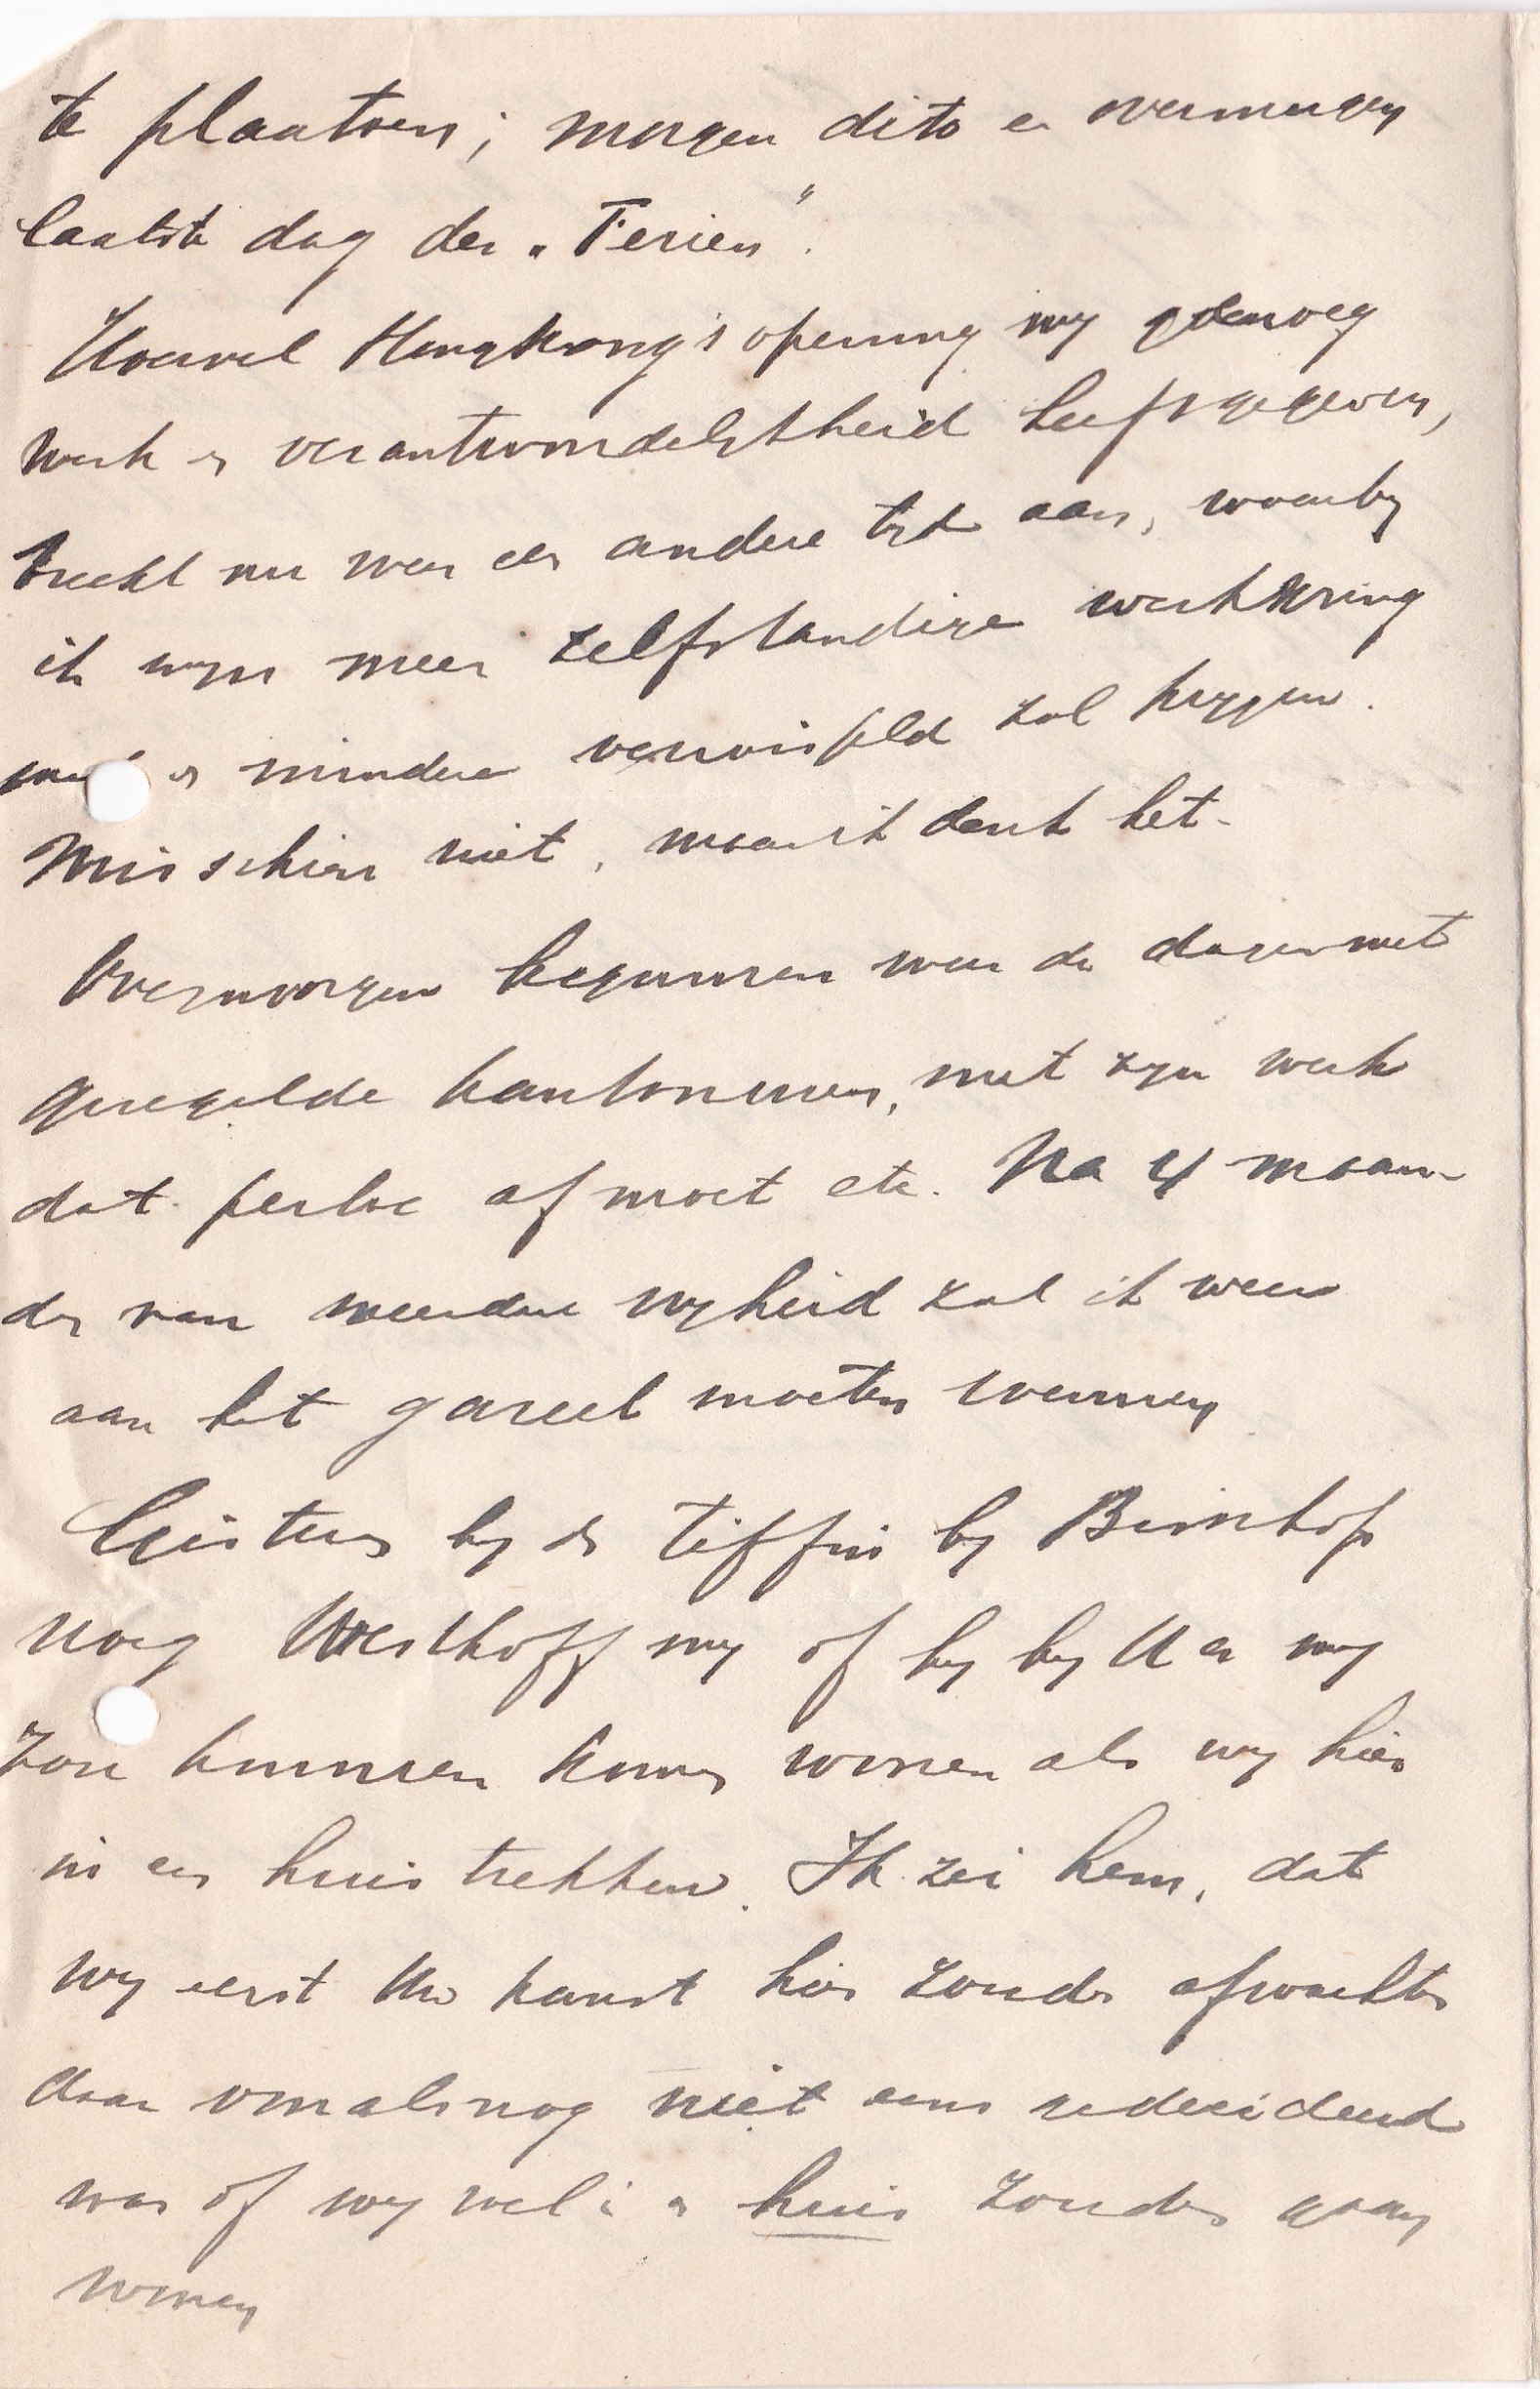 te plaatsen; morgen dito en overmorgen
laatste dag der „Ferien".
Hoewel Hongkong's opening mij genoeg
werk en verantwoordelijkheid heeft gegeven,
breekt nu weer een andere tijd aan, waarbij
ik mijn meer zelfstandige werkkring
met een mindere verwisseld zal krijgen.
Misschien niet, maar ik denk het.
Overmorgen beginnen weer de dagen met
geregelde kantooruren, met zijn werk
dat per loc af moet etc. Na 4 maan-
den van meerdere vrijheid zal ik weer
aan het gareel moeten wennen
Gisteren bij de tiffin bij Bisschop
vroeg Westhoff mij of hij bij U en mij
zou kunnen komen wonen als wij hier
in een huis trekken. Ik zei hem, dat
wij eerst Uw komst hier zouden afwachten
daar vooralsnog niet eens redeneerend
was of wij wel in een huis zouden gaan
wonen